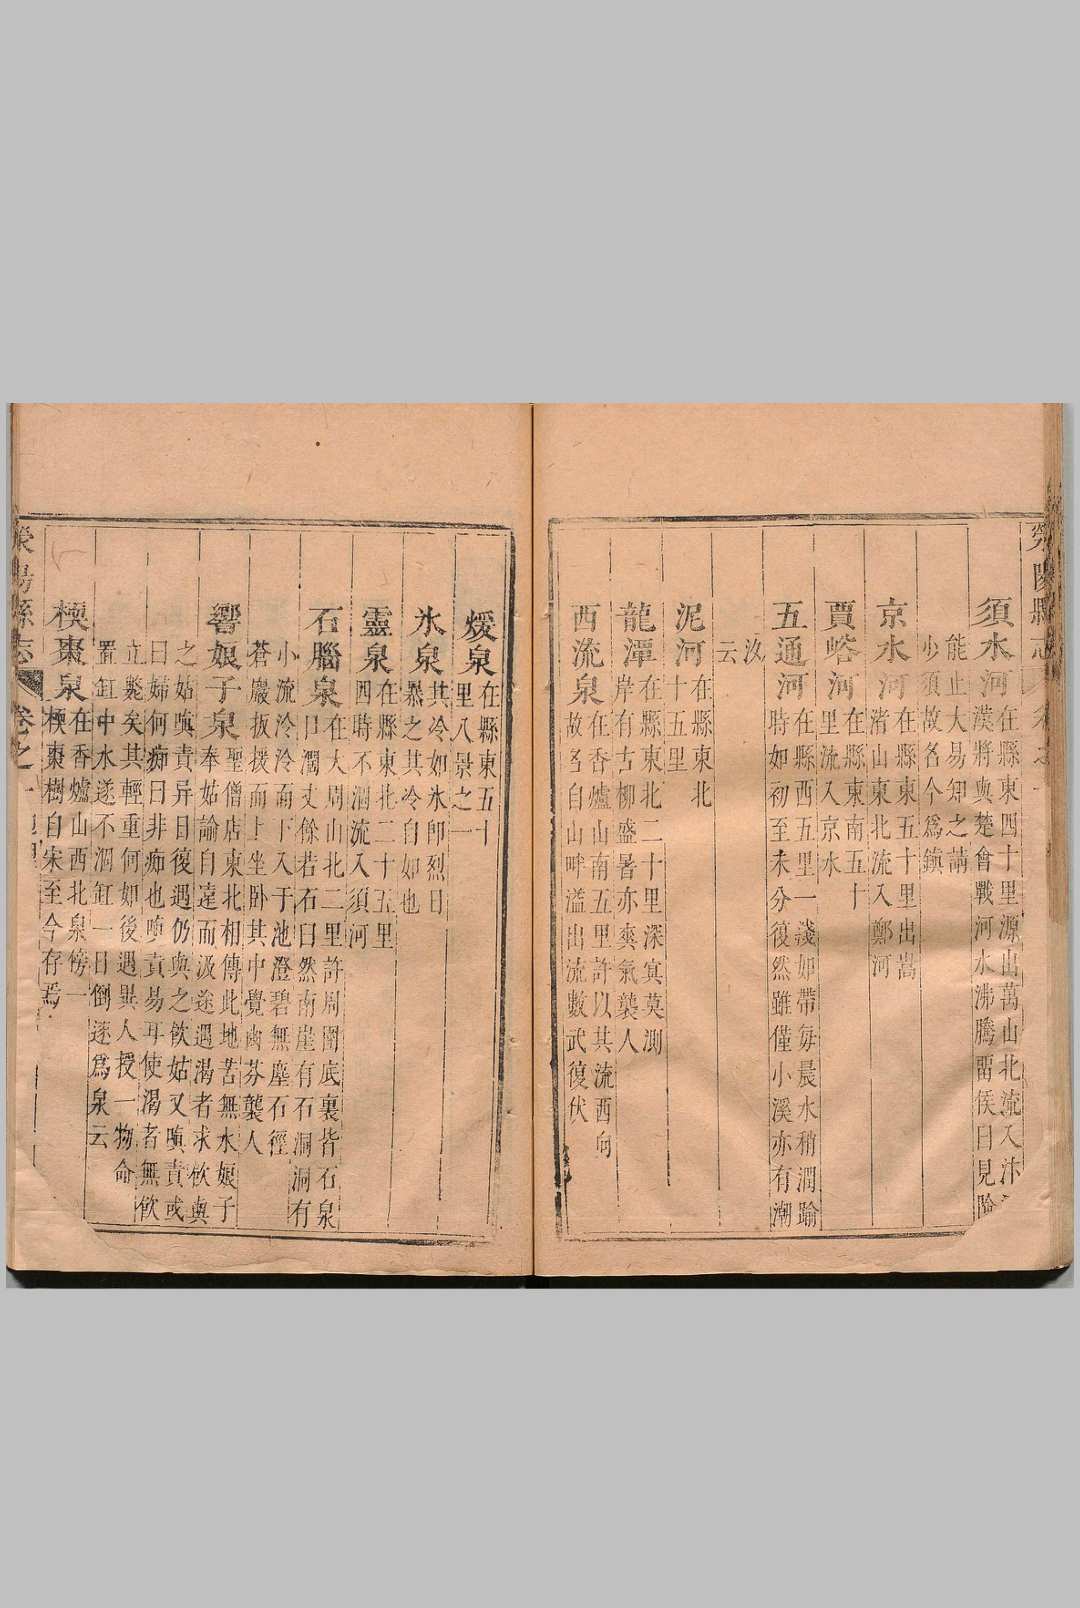 滎陽縣志
須水河在縣東四十里源出萬山北流入汴
漢將與楚會戰河水沸騰畱侯曰見險
能止大易知之請
少須故名今爲鎮
京水河在縣東五十里出嵩
渚山東北流入鄭河
賈峪河在縣東南五十
里流入京水
五通河在縣西五里一淺如帶每晨水稍潤踰
時如初至未分復然雖僅小溪亦有潮
汐
云
泥河在縣東北
十五里
龍潭在縣東北二十里深㝠莫測
岸有古柳盛暑亦爽氣襲人
西流泉在香爐山南五里許以其流西向
故名自山畔溢出流數武復伏
煖泉在縣東五十
里八景之一
氷泉其冷如氷卽烈日
暴之其冷自如也
靈泉在縣東北二十五里
四時不涸流入須河
石腦泉在大周山北二里許周圍底裏皆石泉
口濶丈餘若石臼然南崖有石洞洞有
小流泠泠而下入于池澄碧無塵石徑
蒼巖扳援而上坐卧其中覺幽芬襲人
響娘子泉聖僧店東北相傳此地苦無水娘子
奉姑諭自遠而汲途遇渴者求飲與
之姑嗔責异日復遇仍與之飲姑又嗔責或
曰婦何痴曰非痴也嗔責易耳使渴者無飲
立斃矣其輕重何如後遇異人授一物命
置缸中水遂不涸缸一日倒遂爲泉云
樉棗泉在香爐山西北泉傍一
樉棗樹自宋至今存焉
滎陽縣志
卷之一